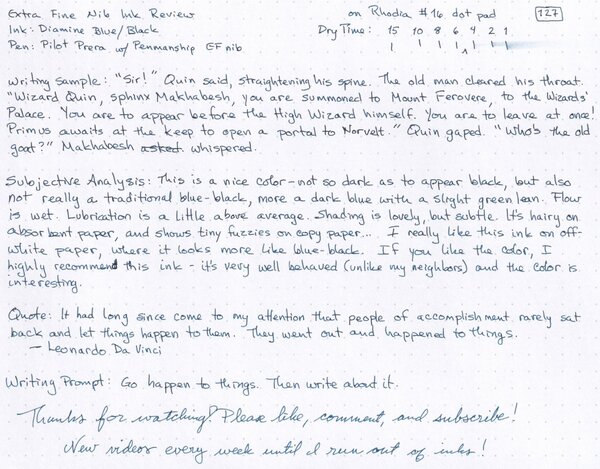 Extra Fine Nib Ink Review on Rhodia #16 dot pad 127
Ink: Diamine Blue/Black Dry Time: 15 10 8 6 4 2 1
Pen: Pilot Prera w/ Penmanship EF nib
Writing sample: "Sir!" Quin said, straightening his spine. The old man cleared his throat.
"Wizard Quin, sphinx Makhabesh, you are summoned to Mount Ferovere, to the Wizards'
Palace. You are to appear before the High Wizard himself. You are to leave at once!
Primus awaits at the keep to open a portal to Norvelt." Quin gaped. "Who's the old
goat?" Makhabesh asked whispered.
Subjective Analysis: This is a nice color-not so dark as to appear black, but also
not really a traditional blue-black, more a dark blue with a slight green lean. Flow
is wet. Lubrication is a little above average. Shading is lovely, but subtle. It's hairy on
absorbent paper, and shows tiny fuzzies on copy paper... I really like this ink on off-
white paper, where it looks more like blue-black. If you like the color, I
highly recommend this ink - it's very well behaved (unlike my neighbors) and the color is
interesting.
Quote: It had long since come to my attention that people of accomplishment rarely sat
back and let things happen to them. They went out and happened to things.
- Leonardo Da Vinci
Writing Prompt: Go happen to things. Then write about it.
Thanks for watching! Please like, comment, and subscribe!
New videos every week until I run out of inks!